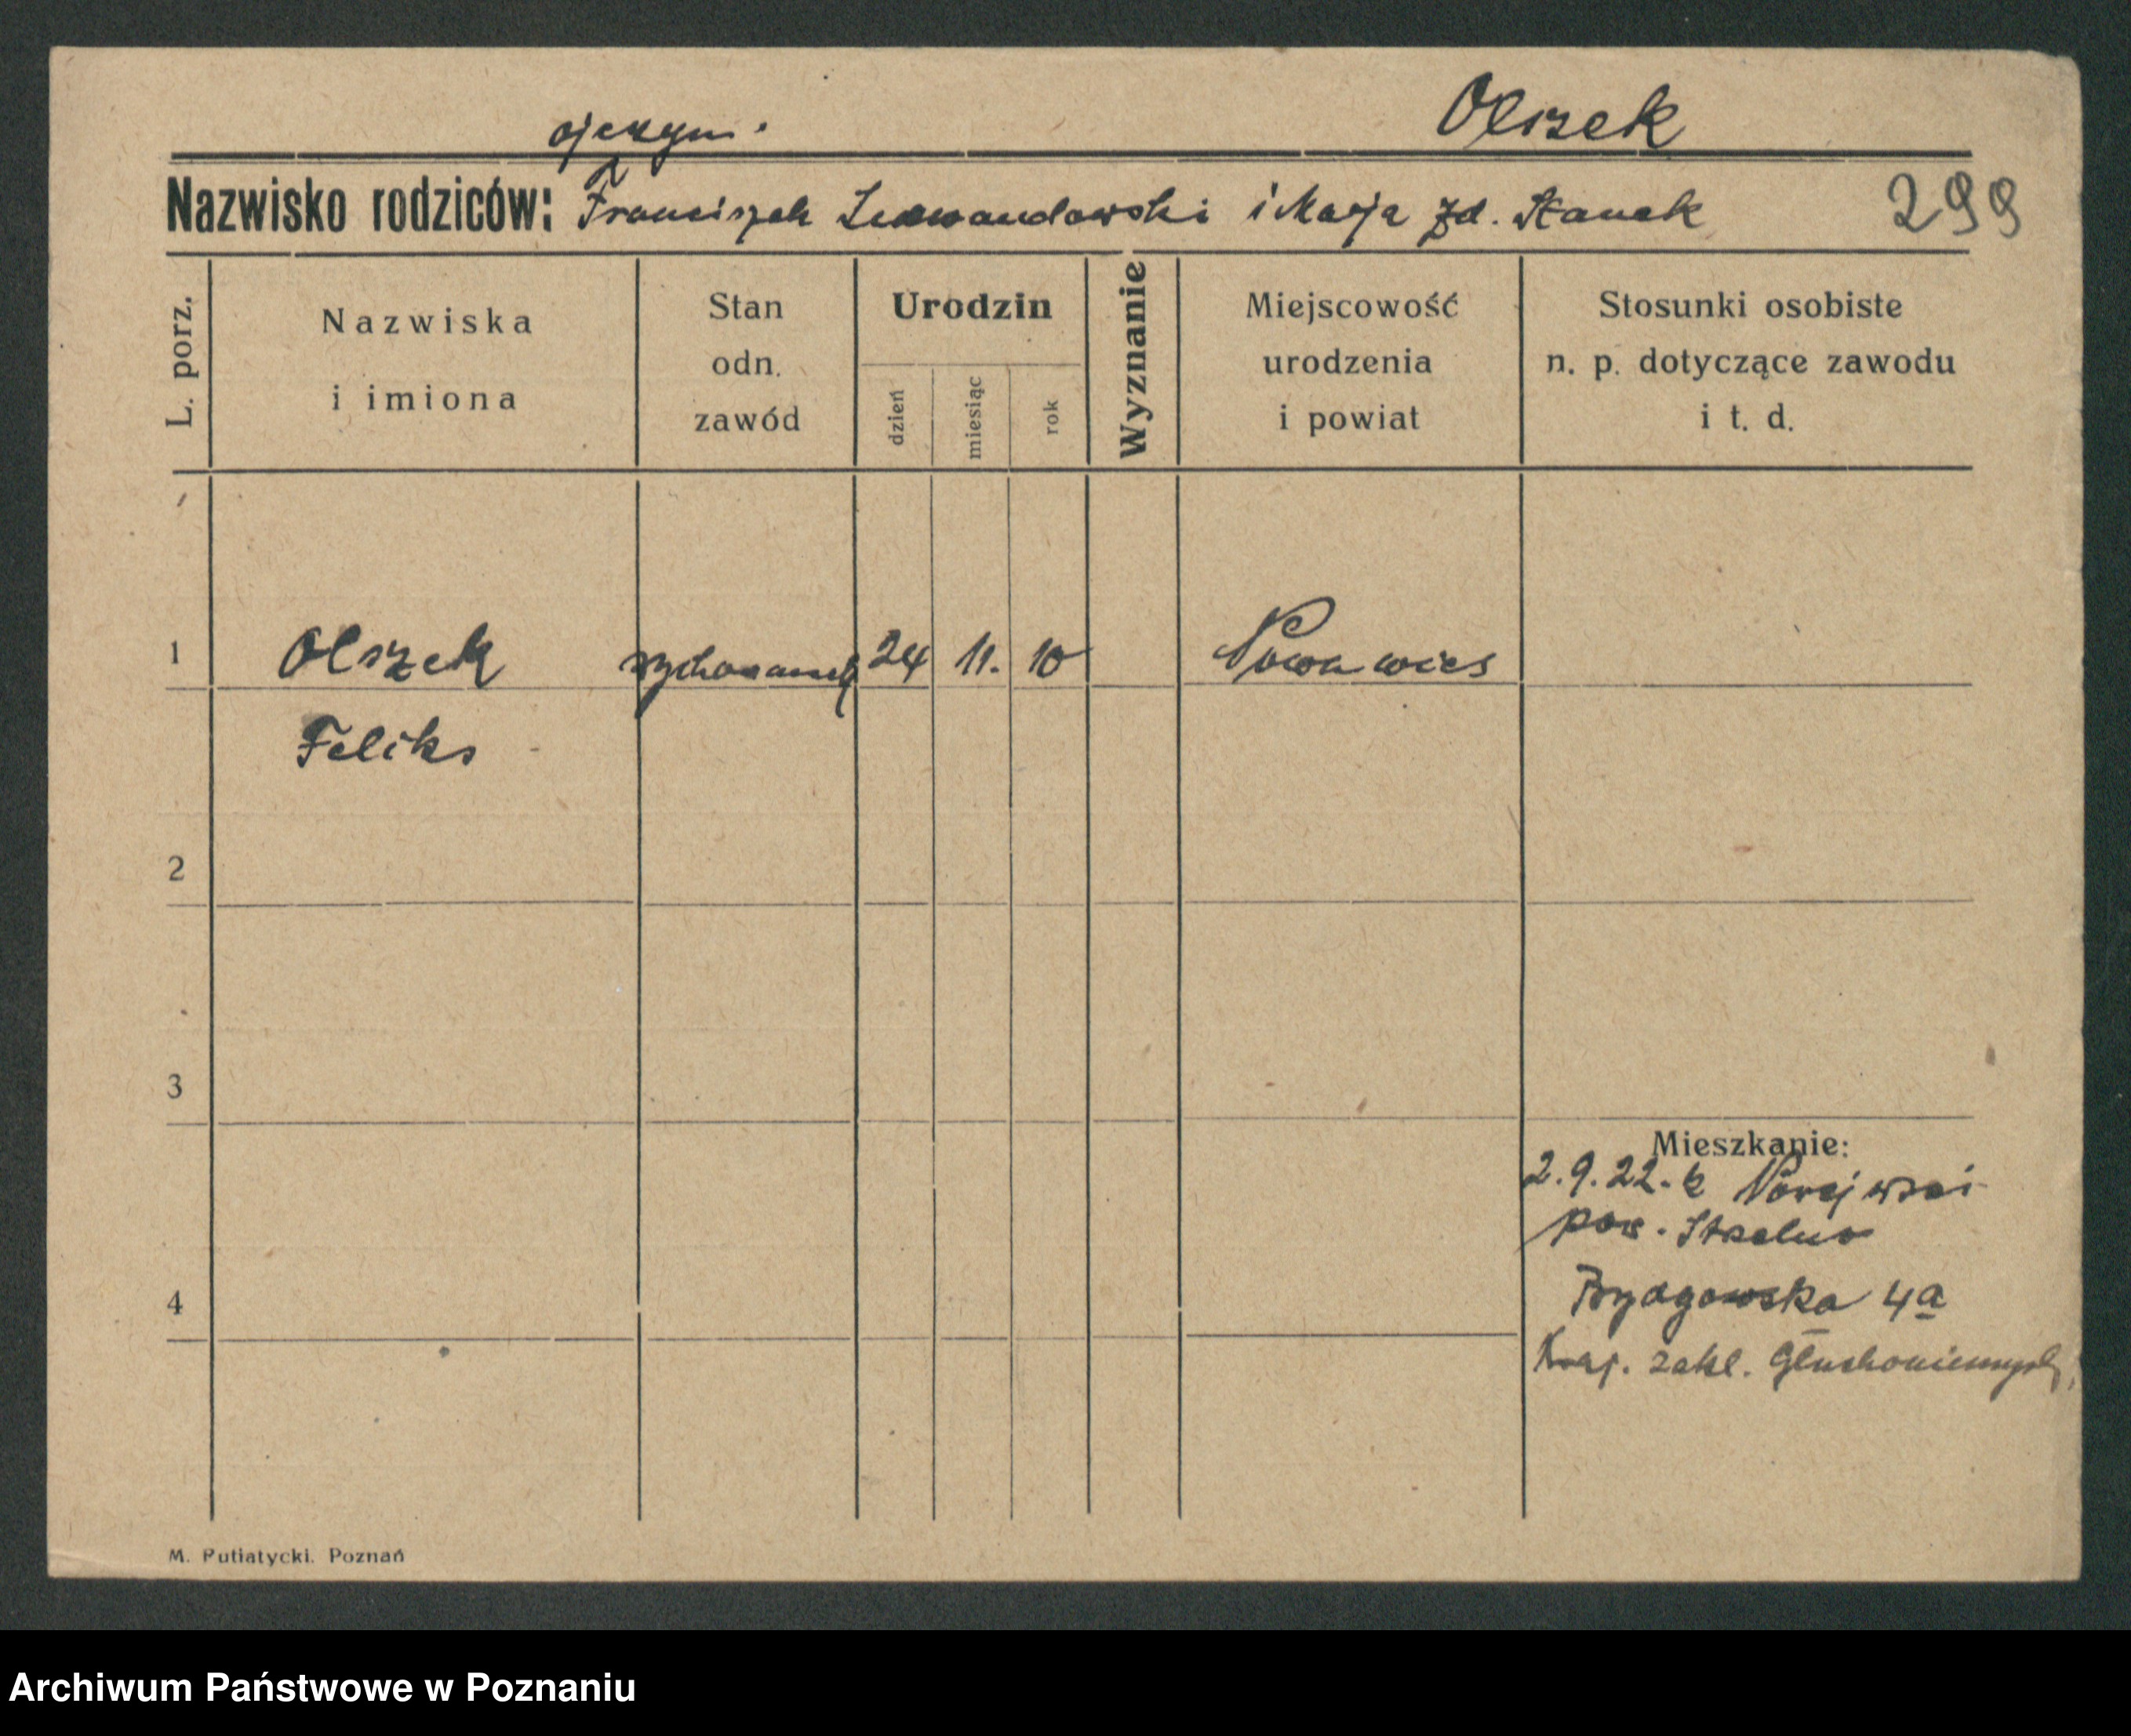 Olszek
ojczym.
Nazwisko rodziców: Franciszek Lewandowski i Marja zd. Stanek 299
L. porz.
Nazwiska
i imiona
Stan
odn.
zawód
Urodzin
dzień
miesiąc
rok
Wyznanie
Miejscowość
urodzenia
i powiat
Stosunki osobiste
n. p. dotyczące zawodu
i t. d.
1 Olszek wychowanek 24 11. 10 Nowawies
Feliks
2
3
Mieszkanie:
2.9.22. z Nowejwsi
pow. Strzelno
4
Bydgowska 4a
Kraj. zakł. Głuchoniemych
M. Putiatycki. Poznań
Archiwum Państwowe w Poznaniu